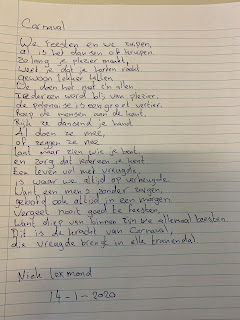 Carnaval
We feesten en we kruipen,
al is het dansen of kruipen
Zolang je plezier maakt,
weet je dat je harten raakt
gewoon lekker lallen
We doen het met z'n allen
Iedereen word blij van plezier,
de polonaise is een groot vertier.
Roep de mensen aan de kant,
Reik ze dansend je hand
Al doen ze mee,
of zeggen ze nee
laat maar zien wie je bent
en zorg dat iedereen je kent
Een leven vol met vreugde,
is waar we altijd op verheugde
Want een mens zonder zorgen,
gelooft ook altijd in een morgen.
Vergeet nooit goed te feesten,
Want diep van binnen zijn we allemaal beesten
Dit is de kracht van Carnaval,
die vreugde brengt in elk tranendal.
Nick Lexmond
14-1-2020